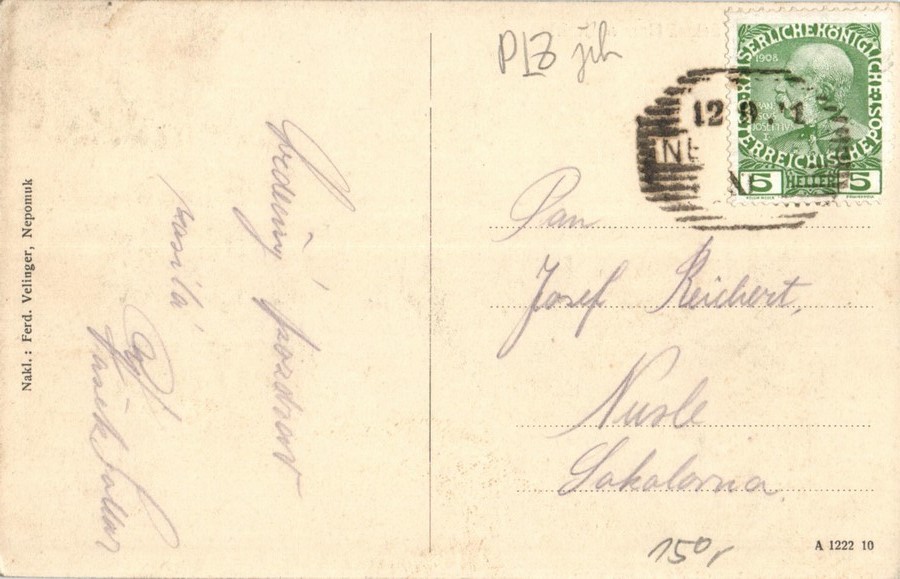 PLZ jih
KAISERLICHE KÖNIGLICHE ÖSTERREICHISCHE POST
1908
5 HELLER 5
12 9
NE
Pan
Josef Reichert,
Nusle
Sokolovna.
150,
A 1222 10
Srdečný pozdrav
posílá
Nakl.: Ferd. Velinger, Nepomuk